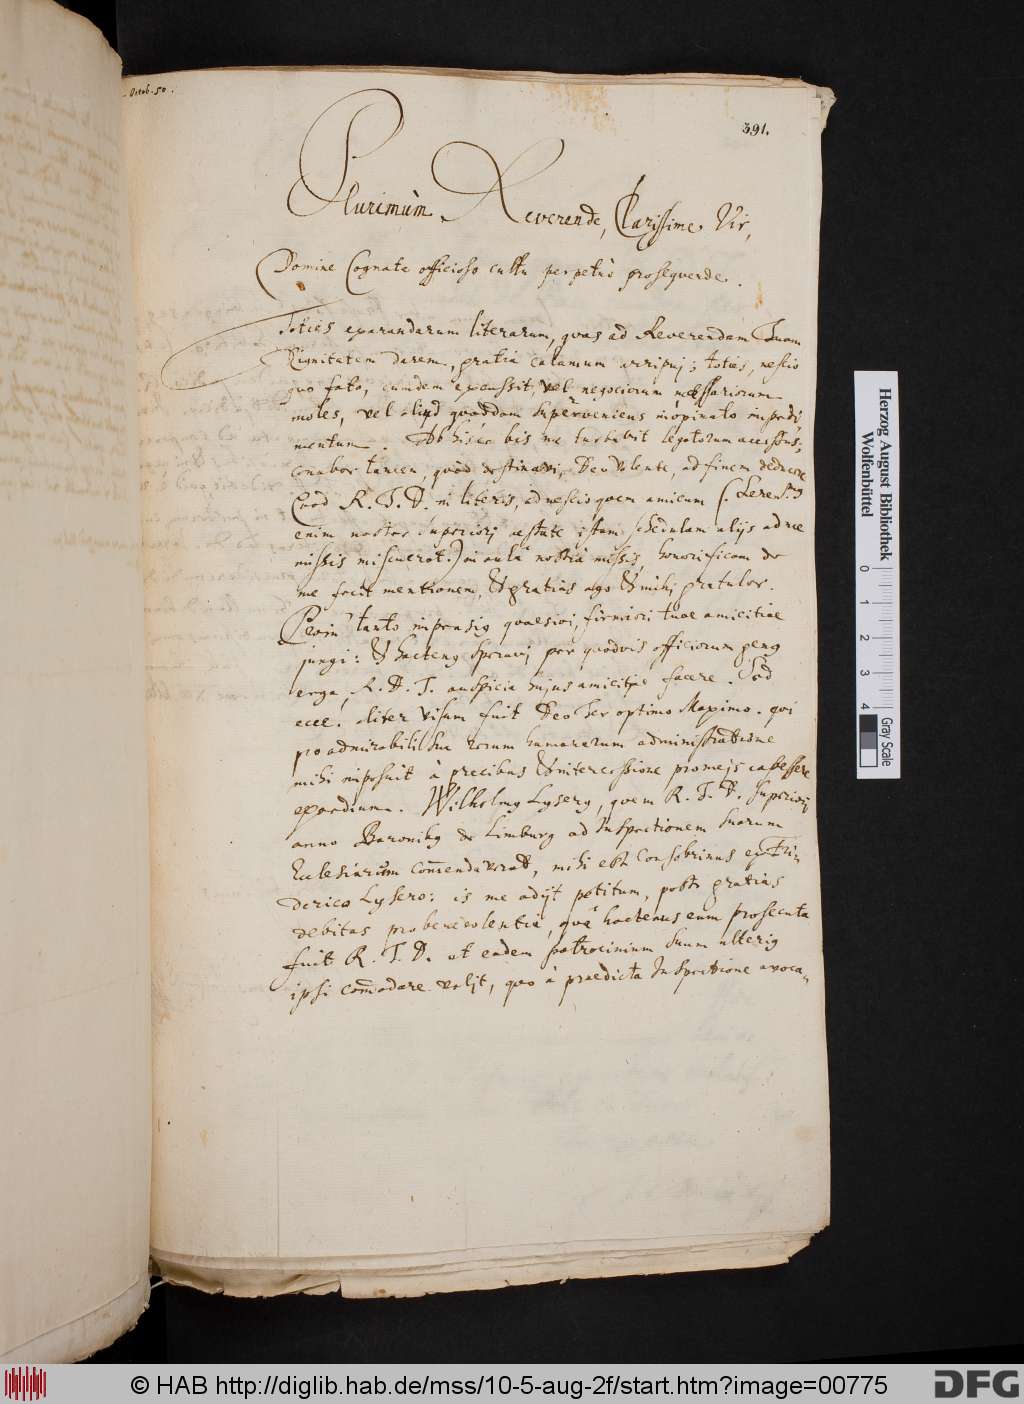 Octob. 50.
391.
Plurimùm Reverende, Clarissime Vir,
Domine Cognate officioso cultu perpetuò prosequende.
Toties exarandarum literarum, quas ad Reverendam Tuam
Dignitatem darem, gratia calamum arripuj; toties, nescio
quo fato, eundem excussit, vel negociorum necessariorum
moles, vel aliud quoddam superveniens inopinato impedi-
mentum. Ab hisce bis me turbavit legatorum accessus,
conabor tamen, quod destinavi, Deo volente, ad finem deducere
Quod R. T. D. in literis, ad nescio quem amicum
enim noster superiorj aestate istam schedulam alijs ad me
missis miscuerat:) in aulâ nostrâ missis, honorificam de
me facit mentionem, & gratias ago & mihj gratulor.
tanto impensig quaesivi, firmiori tuae amicitiae
jungi: & hacteng speravj per quodvis officiorum geng
erga, R. D. T. auspicia hujus amicitiae facere. Sed
ecce. aliter visum fuit Deo Ter optimo Maximo. qui
pro admirabili sua rerum humanarum administratione
mihi imposuit à precibus & intercessione promejs capessere
exordium. Wilhelmg Lyserg, quem R. T. D. superiorj
anno Baronibg de Limburg ad Inspectionem suarum
Ecclesiarum com̄endaverat, mihi est Consobrinus ex Fri-
derico Lysero: is me adijt petitum, post gratias
debitas pro benevolentia, quâ hactenus eum prosecuta
fuit R. T. D. ut eadem patrocinium suum ulterig
ipsi com̄odare velit, quo à praedicta Inspectione avoca-
Herzog August Bibliothek
Wolfenbüttel
0 1 2 3 4
Gray Scale
© HAB http://diglib.hab.de/mss/10-5-aug-2f/start.htm?image=00775
DFG